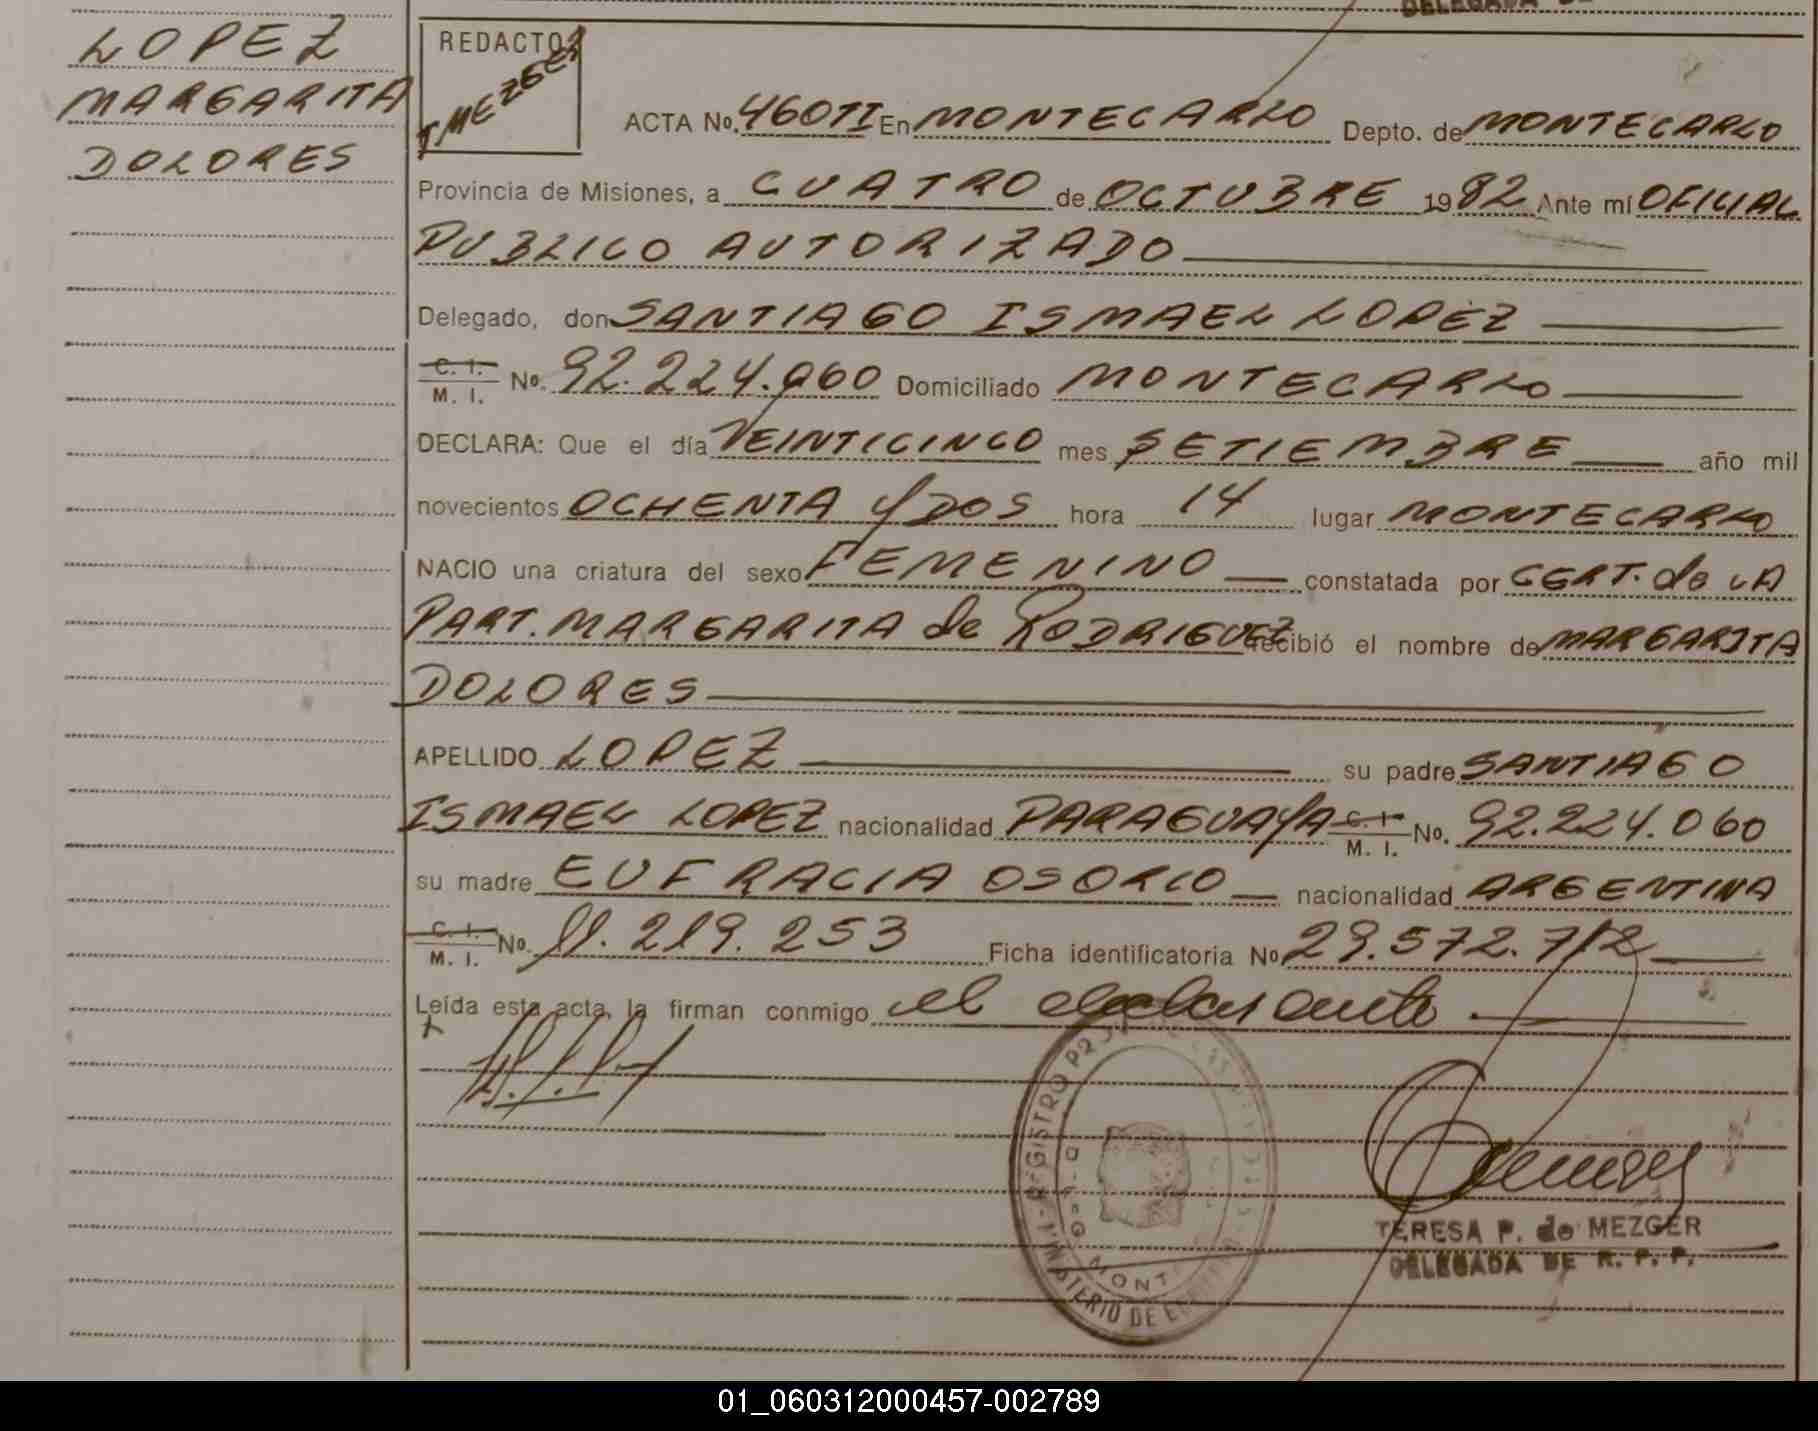 DELEGADA DE
LOPEZ
MARGARITA
DOLORES
REDACTOR
T MEZGER
ACTA No. 460TI En MONTECARLO Depto. de MONTECARLO
Provincia de Misiones, a CUATRO de OCTUBRE 1982 Ante mí OFICIAL
PUBLICO AUTORIZADO
Delegado, don SANTIAGO ISMAEL LOPEZ
C. I. / M. I. No. 92.224.060 Domiciliado MONTECARLO
DECLARA: Que el día VEINTICINCO mes SETIEMBRE año mil
novecientos OCHENTA y DOS hora 14 lugar MONTECARLO
NACIO una criatura del sexo FEMENINO constatada por CERT. de LA
PART. MARGARITA de RODRIGUEZ recibió el nombre de MARGARITA
DOLORES
APELLIDO LOPEZ su padre SANTIAGO
ISMAEL LOPEZ nacionalidad PARAGUAYA C. I. / M. I. No. 92.224.060
su madre EUFRACIA OSORIO nacionalidad ARGENTINA
C. I. / M. I. No. 11.219.253 Ficha identificatoria No 29.572.712
Leída esta acta, la firman conmigo el declarante
REGISTRO MINISTERIO DE
TERESA P. de MEZGER
DELEGADA DE R. P. P.
01_060312000457-002789